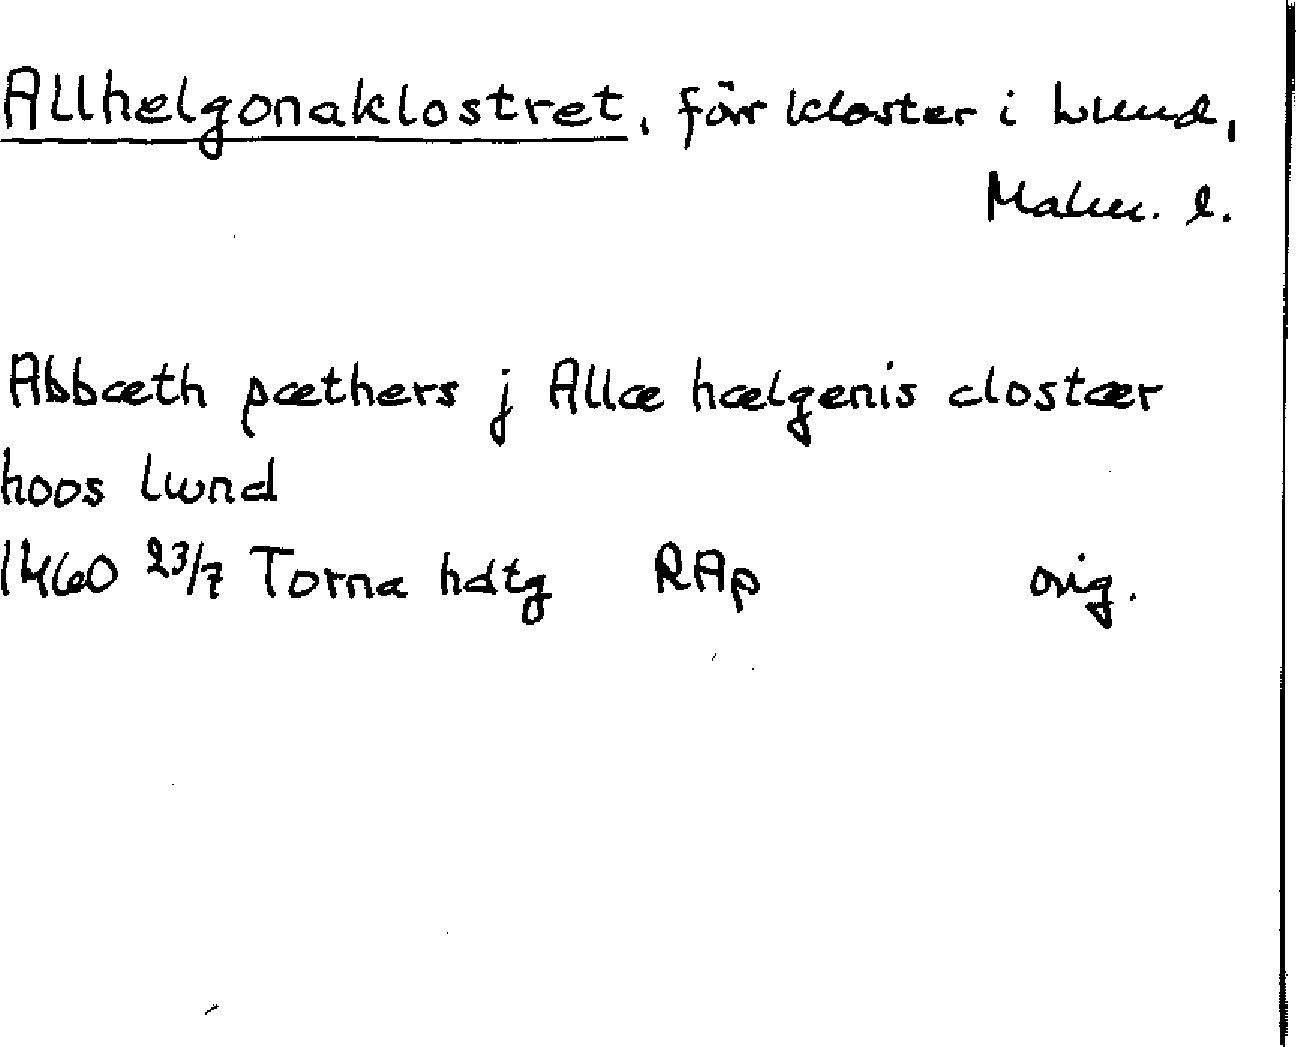 Allhelgonaklostret, förr kloster i Lund,
Malm. l.
Abbæth pæthers j Allæ hælgenis clostær
hoos Lwnd
1460 23/7 Torna hdtg RAp orig.